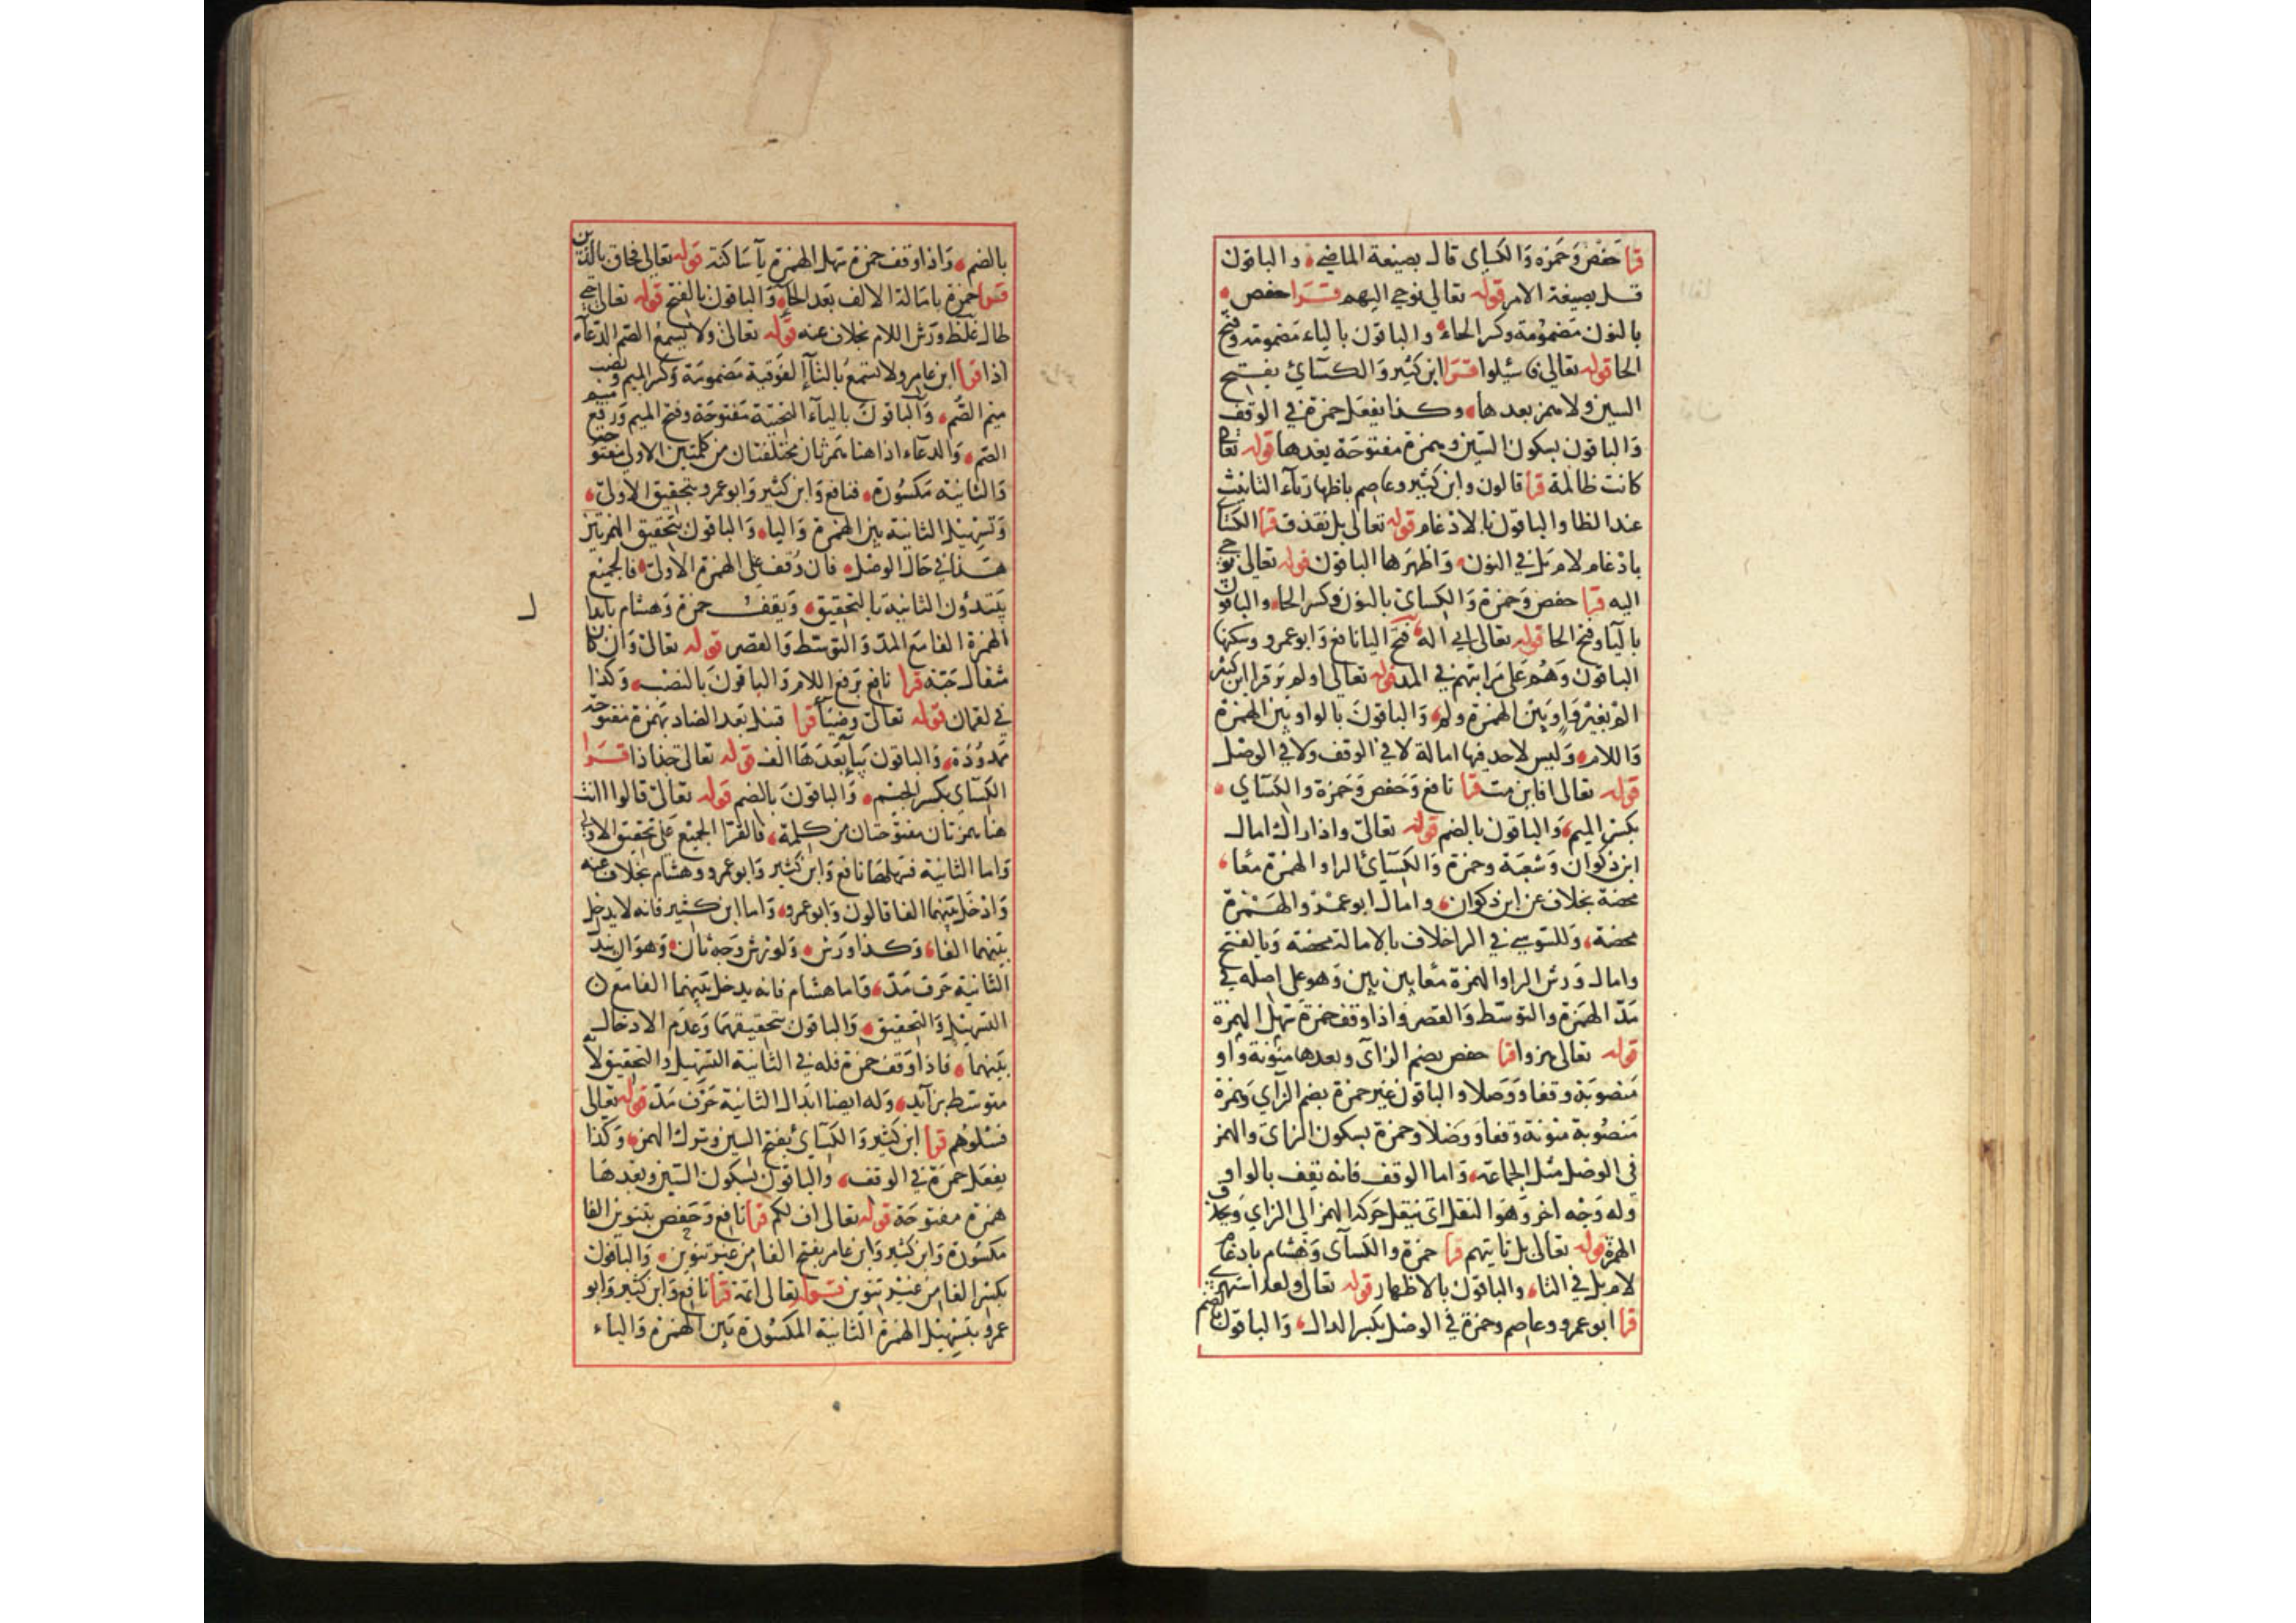 قرا حفص وحمزه والكساى قال بصيغة الماضي والباقون
قل بصيغة الامر قوله تعالى نوحي اليهم قرا حفص
بالنون مضمومة وكسر الحاء والباقون بالياء مضمومة وفتح
الحا قوله تعالى فاسئلوا قرا ابن كثير والكسائي بفتح
السين ولا همز بعدها وكذا يفعل حمزة في الوقف
والباقون بسكون السين وهمزة مفتوحة بعدها قوله تعالى
كانت ظالمة قرا قالون وابن كثير وعاصم باظهار تاء التانيث
عند الظا والباقون بالادغام قوله تعالى بل نقذف قرا الكسائي
بادغام لام بل في النون واظهرها الباقون قوله تعالى نوحي
اليه قرا حفص وحمزة والكساي بالنون وكسر الحا والباقون
باليا وفتح الحا قوله تعالى اني اله فتح اليا نافع وابو عمرو وسكنها
الباقون وهم على مراتبهم في المد قوله تعالى اولم ير قرا ابن كثير
الم بغير واو بين الهمزة ولم والباقون بالواو بين الهمزة
واللام وليس لاحد فيها امالة لا في الوقف ولا في الوصل
قوله تعالى افاين مت قرا نافع وحفص وحمزة والكساي
بكسر الميم والباقون بالضم قوله تعالى واذا راك امال
ابن ذكوان وشعبة وحمزة والكسائ الرا والهمزة معا
محضة بخلاف عن ابن ذكوان وامال ابو عمرو الهمزة
محضة وللسوسي في الرا خلاف بالامالة محضة وبالفتح
وامال ورش الرا والهمزة معا بين بين وهو على اصله في
مد الهمزة والتوسط والقصر واذا وقف حمزة سهل الهمزة
قوله تعالى هزوا قرا حفص بضم الزاى وبعدها منونة واو
منصوبة وقفا ووصلا والباقون غير حمزة بضم الزاي وهمزة
منصوبة منونة وقفا ووصلا وحمزة بسكون الزاى والهمز
فى الوصل مثل الجماعة واما الوقف فانه يقف بالواو
وله وجه اخر وهو النقل اى ينقل حركة الهمز الى الزاي ويحذف
الهمزة قوله تعالى بل تاتيهم قرا حمزة والكساى وهشام بادغام
لام بل في التاء والباقون بالاظهار قوله تعالى ولقد استهزئ
قرا ابو عمرو وعاصم وحمزة في الوصل بكسر الدال والباقون بالضم
بالضم واذا وقف حمزة سهل الهمزة يآ ساكنة قوله تعالى فحاق بالذين
قرا حمزة بامالة الالف بعد الحآ والباقون بالفتح قوله تعالى حتى
طال غلظ ورش اللام بخلاف عنه قوله تعالى ولا يسمع الصم الدعآء
اذا قرا ابن عامر ولا تسمع بالتآ الفوقية مضمومة وكسر الميم ونصب
ميم الصم والباقون باليآء التحتية مفتوحة وفتح الميم ورفع ميم
الصم والدعآء اذا هنا همزتان مختلفتان من كلمتين الاولى مفتوحة
والثانية مكسورة فنافع وابن كثير وابو عمرو بتحقيق الاولى
وتسهيل الثانية بين الهمزة واليا والباقون بتحقيق الهمزتين
هذا في حال الوصل فان وقف على الهمزة الاولى فالجميع
يبتدؤن الثانية بالتحقيق ويقف حمزة وهشام بابدال
الهمزة الفا مع المد والتوسط والقصر قوله تعالى وان كان
مثقال حبة قرا نافع برفع اللام والباقون بالنصب وكذا
في لقمان قوله تعالى وضيآ قرا قنبل بعد الضاد بهمزة مفتوحة
ممدودة والباقون بيآ بعدها الف قوله تعالى جذاذا قرا
الكسآي بكسر الجيم والباقون بالضم قوله تعالى قالوا اانت
هنا همزتان مفتوحتان من كلمة فالقرا الجميع على تحقيق الاولى
واما الثانية فسهلها نافع وابن كثير وابو عمرو وهشام بخلاف عنه
وادخل بينهما الفا قالون وابو عمرو واما ابن كثير فانه لا يدخل
بينهما الفا وكذا ورش ولورش وجه ثان وهو ان يبدل
الثانية حرف مد واما هشام فانه يدخل بينهما الفا مع
التسهيل والتحقيق والباقون بتحقيقهما وعدم الادخال
بينهما فاذا وقف حمزة فله في الثانية التسهيل والتحقيق لانه
متوسط بزآيد وله ايضا ابدال الثانية حرف مد قوله تعالى
فسلوهم قرا ابن كثير والكسآئ بفتح السين وترك الهمز وكذا
يفعل حمزة في الوقف والباقون بسكون السين وبعدها
همزة مفتوحة قوله تعالى اف لكم قرا نافع وحفص بتنوين الفا
مكسورة وابن كثير وابن عامر بفتح الفا من غير تنوين والباقون
بكسر الفا من غير تنوين قوله تعالى ائمة قرا نافع وابن كثير وابو
عمرو بتسهيل الهمزة الثانية المكسورة بين الهمزة والياء